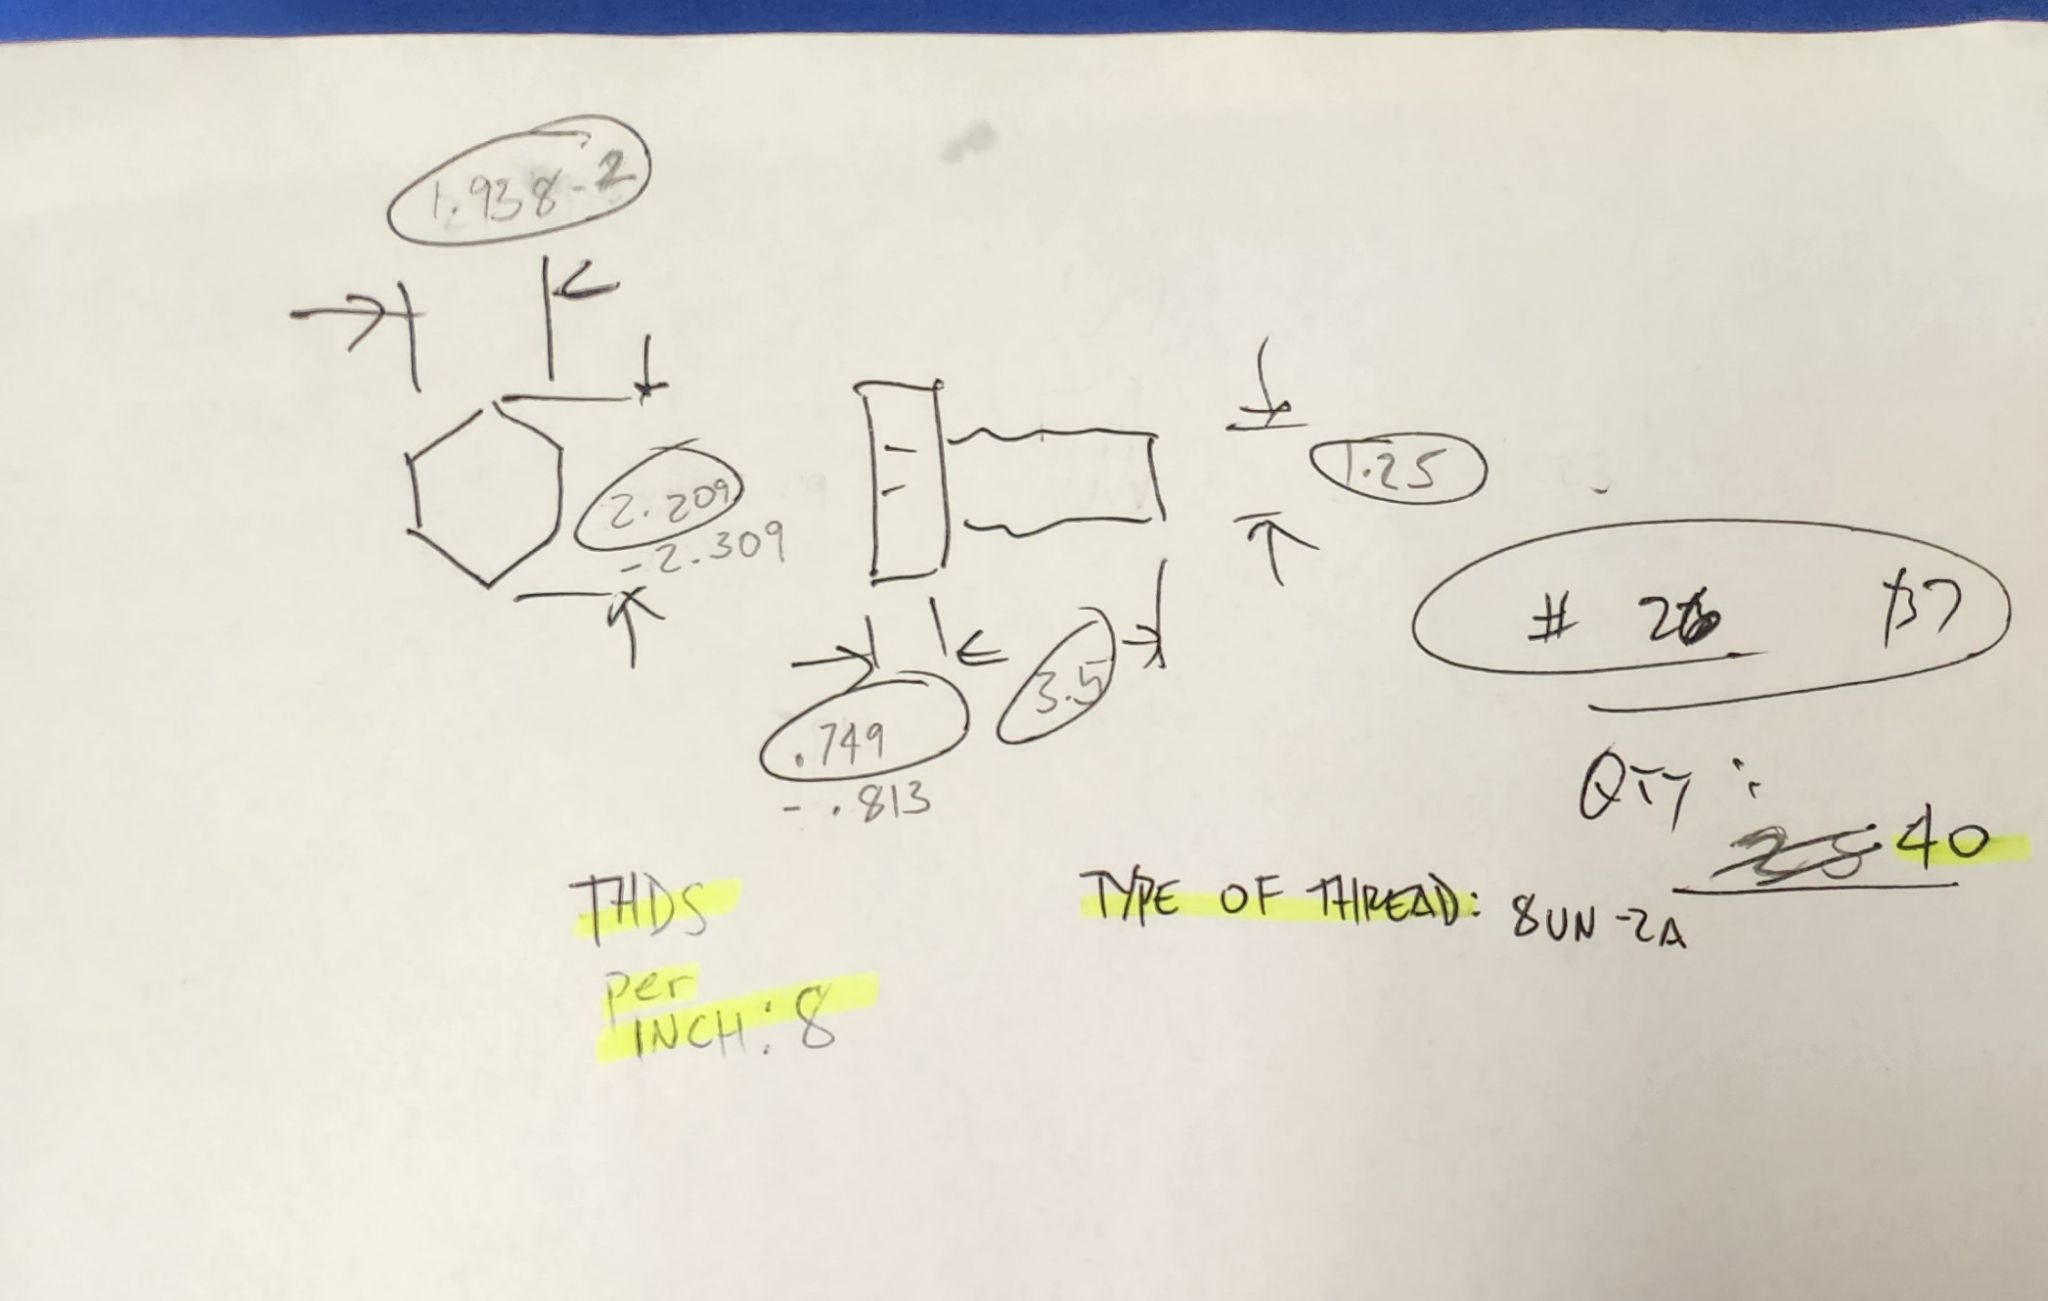 1.938-2
2.209
-2.309
1.25
3.5
.749
-.813
# 26 B7
QTY:
25 40
THDS
per
INCH: 8
TYPE OF THREAD: 8UN-2A